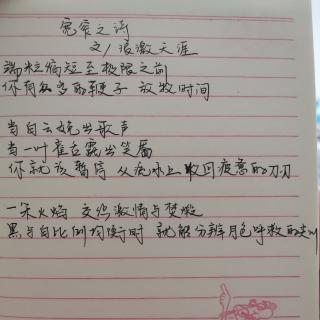 之诗
文/浪激天涯
缩短至极限之前
你有多的鞭子 放牧时间
当白云婉出歌声
当一叶雀舌露出笑
你就该暂停 从流水上收回疲惫的刀刃
一朵火焰 交织激情与焚毁
黑与白比例均衡时 就能分辨月色呼救的